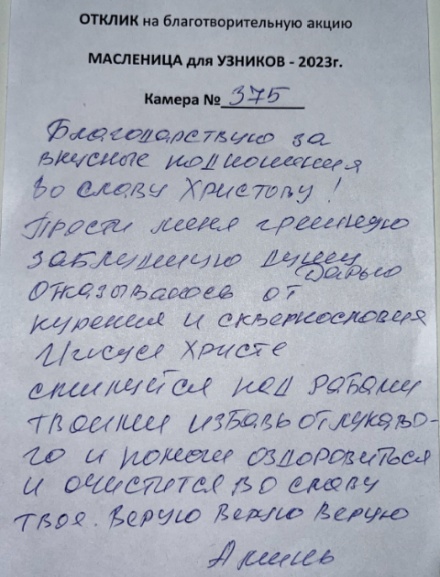 ОТКЛИК на благотворительную акцию
МАСЛЕНИЦА для УЗНИКОВ - 2023г.
Камера № 375
Благодарствую за
вкусные подношения
во славу Христову!
Прости меня грешную
заблудшую душу
Дарью
отказываюсь от
курения и сквернословия
Иисусе Христе
смилуйся над рабами
твоими избавь от лукаво-
го и помоги оздоровиться
и очистится во славу
твоя. Верую Верую Верую
Аминь